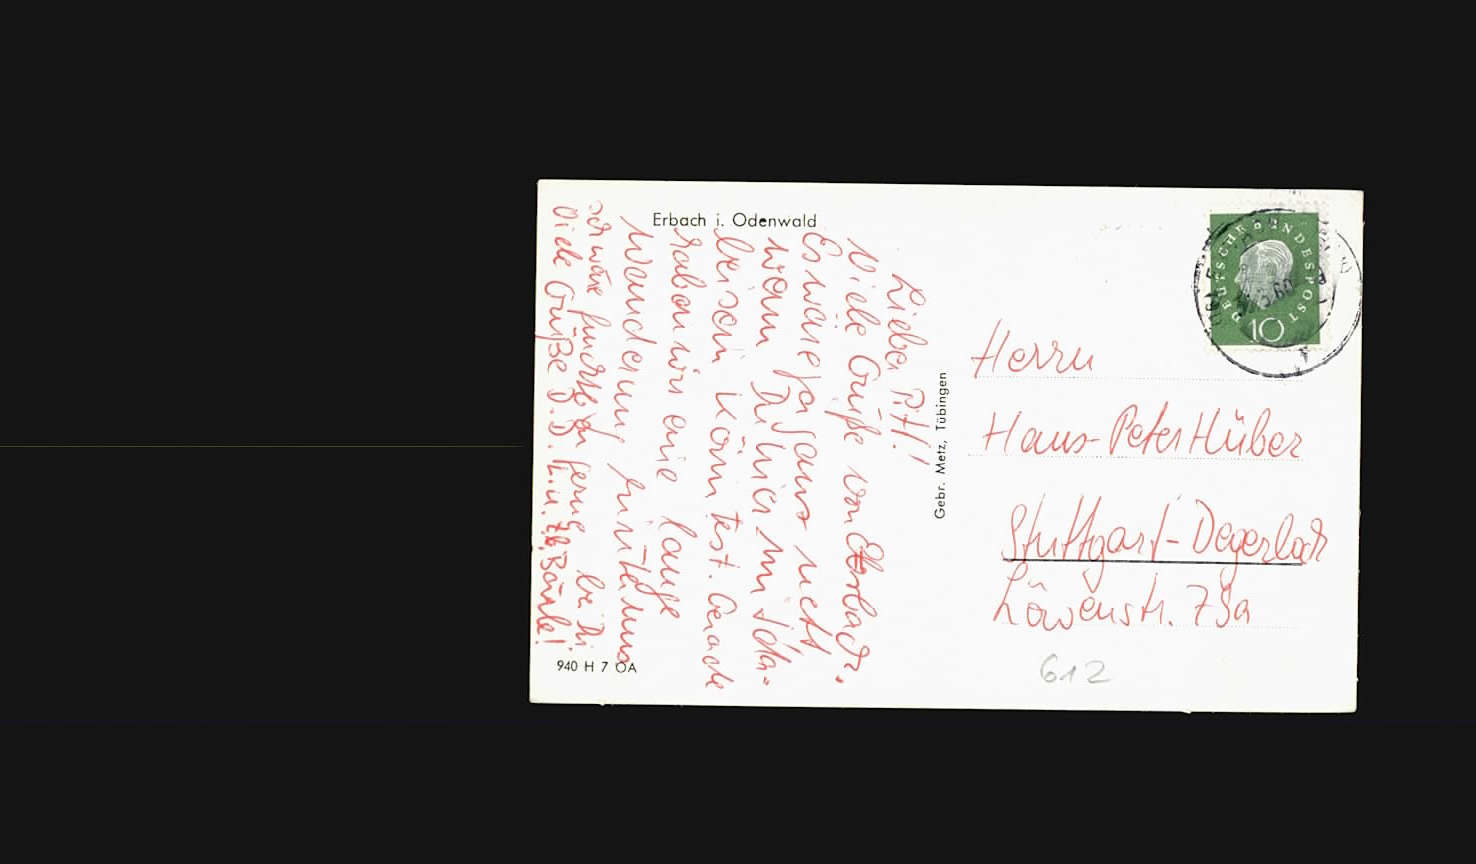 Erbach i. Odenwald
Lieber P.H.!
Viele Grüße von Erbach.
Es wäre ja ganz nett
wenn Du hier mit da-
bei sein könntest. Gerade
haben wir eine lange
Wanderung hinter uns
Ich wäre gerne bei Dir
Viele Grüße
940 H 7 OA
Gebr. Metz, Tübingen
DEUTSCHE BUNDESPOST
10
Herrn
Hans-Peter Hüber
Stuttgart-Degerloch
Löwenstr. 79a
612